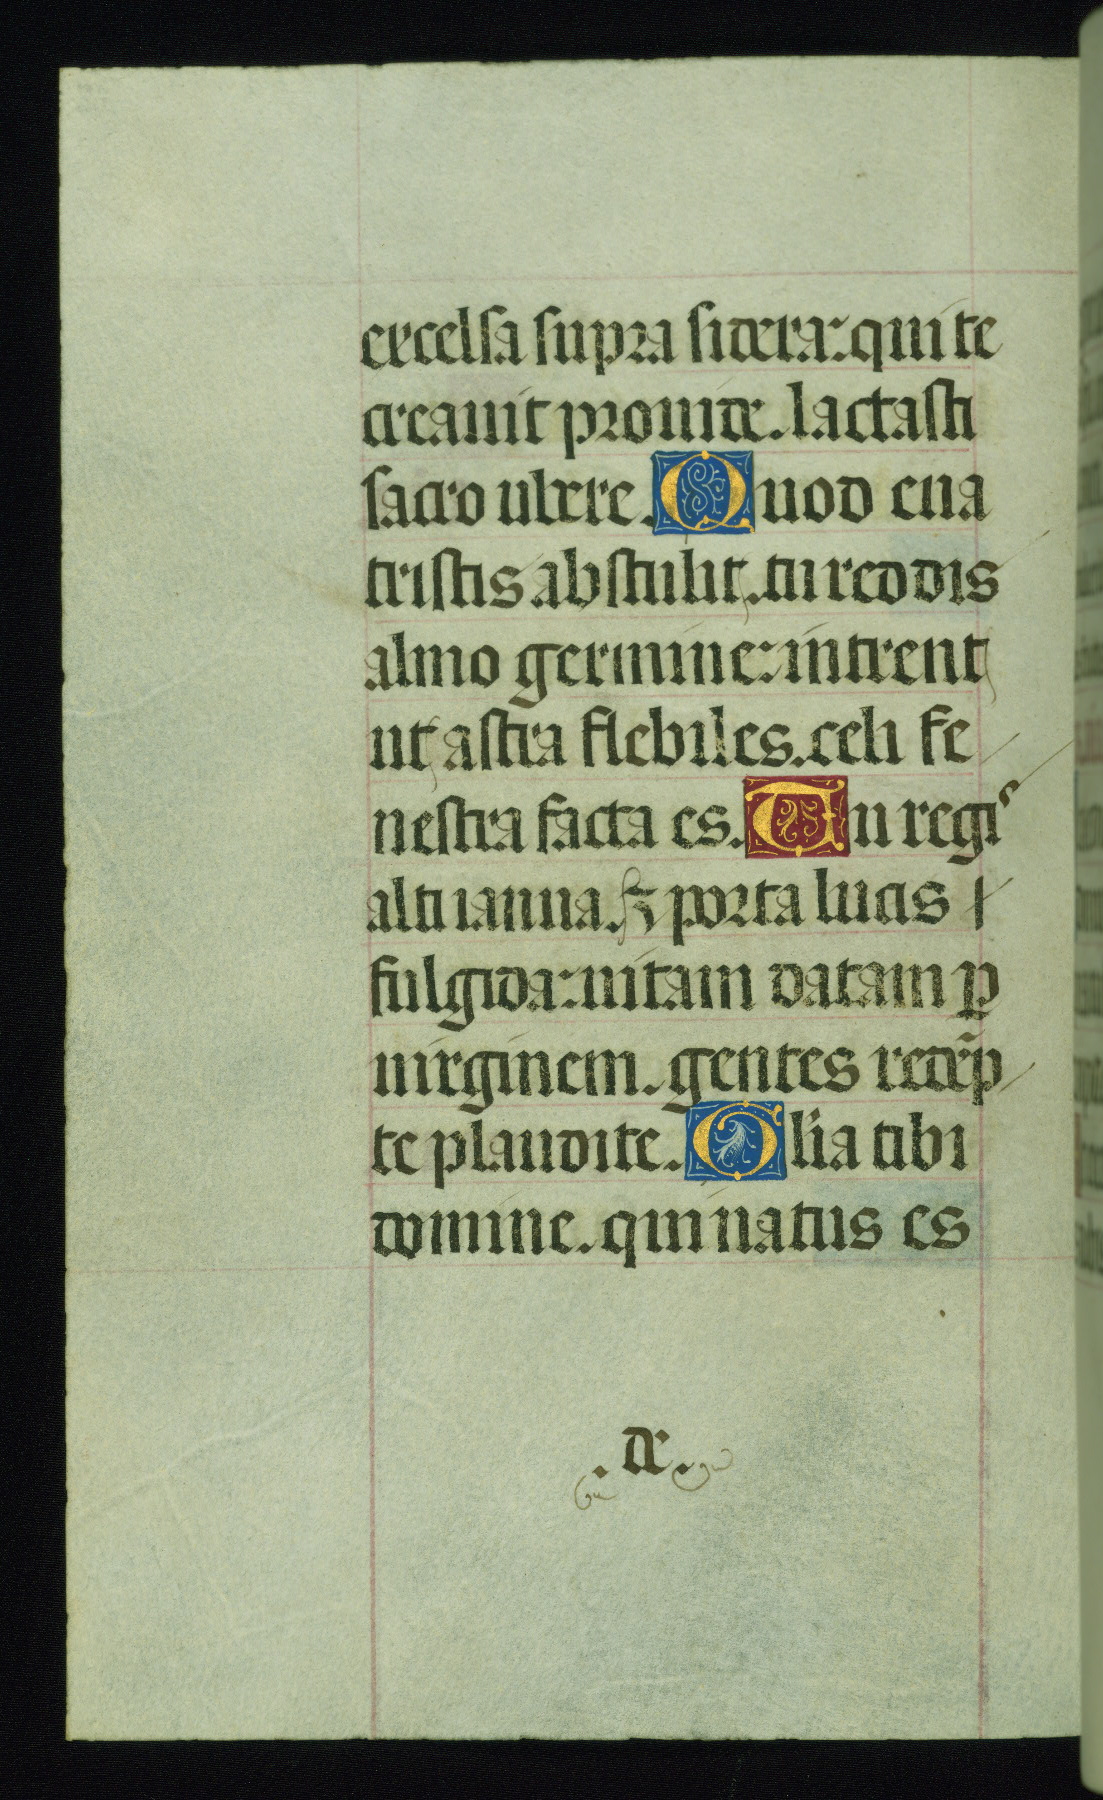 excelsa supra sidera: qui te
creauit prouide. lactasti
sacro ubere. Quod eua
tristis abstulit. tu reddis
almo germine: intrent
ut astra flebiles. celi fe
nestra facta es. Tu regis
alti ianua. ⁊ porta lucis
fulgida: uitam datam ꝑ
uirginem. gentes redẽp
te plaudite. Glia tibi
domine. qui natus es
. de .